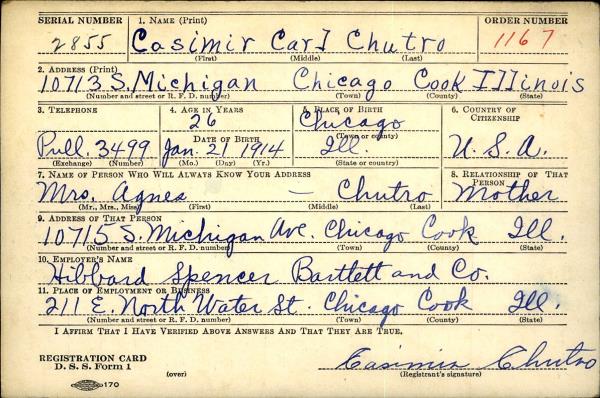 SERIAL NUMBER 1. NAME (Print) ORDER NUMBER
2855 Casimir Carl Chutro 1167
(First) (Middle) (Last)
2. ADDRESS (Print)
10713 S. Michigan Chicago Cook Illinois
(Number and street or R. F. D. number) (Town) (County) (State)
3. TELEPHONE 4. AGE IN YEARS 5. PLACE OF BIRTH 6. COUNTRY OF CITIZENSHIP
26 Chicago
DATE OF BIRTH (Town or county)
Pull. 3499 Jan. 21 1914 Ill. U. S. A.
(Exchange) (Number) (Mo.) (Day) (Yr.) (State or country)
7. NAME OF PERSON WHO WILL ALWAYS KNOW YOUR ADDRESS 8. RELATIONSHIP OF THAT PERSON
Mrs. Agnes — Chutro Mother
(Mr., Mrs., Miss) (First) (Middle) (Last)
9. ADDRESS OF THAT PERSON
10715 S. Michigan Ave. Chicago Cook Ill.
(Number and street or R. F. D. number) (Town) (County) (State)
10. EMPLOYER'S NAME
Hibbard Spencer Bartlett and Co.
11. PLACE OF EMPLOYMENT OR BUSINESS
211 E. North Water St. Chicago Cook Ill.
(Number and street or R. F. D. number) (Town) (County) (State)
I AFFIRM THAT I HAVE VERIFIED ABOVE ANSWERS AND THAT THEY ARE TRUE.
REGISTRATION CARD
D. S. S. Form 1 Casimir Chutro
(over) (Registrant's signature)
170